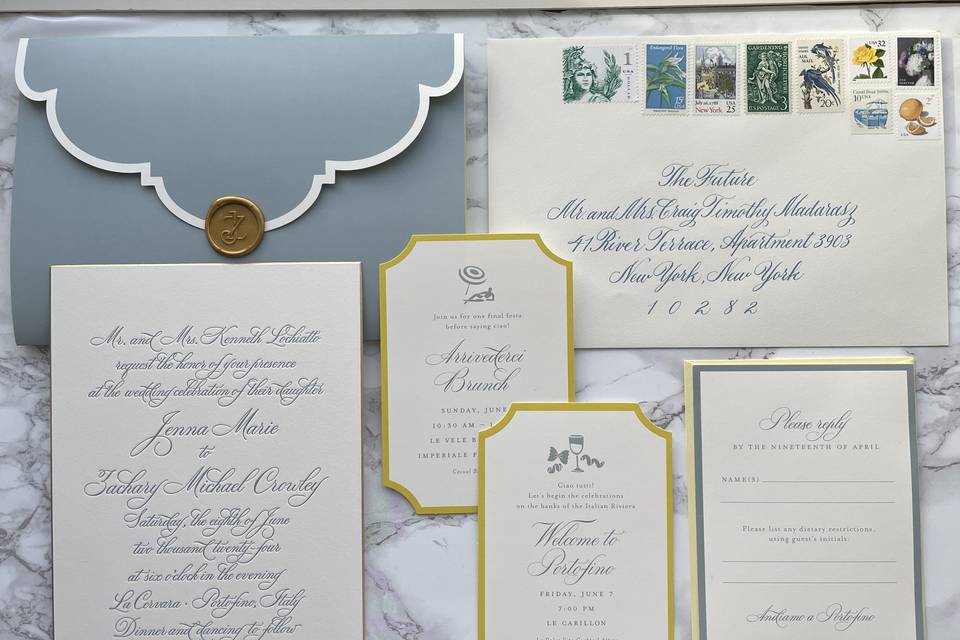 The Future
Mr and Mrs Craig Timothy Madarasz
41 River Terrace, Apartment 3903
New York, New York
10282
1
USA
Endangered Flora
15c
USA
July 26, 1788
USA
New York 25
GARDENING
3
U.S. POSTAGE
USA
AIR MAIL
20c
32
USA
USA
10 USA
2
Mr. and Mrs. Kenneth Lochiatto
request the honor of your presence
at the wedding celebration of their daughter
Jenna Marie
to
Zachary Michael Crowley
Saturday, the eighth of June
two thousand twenty-four
at six o'clock in the evening
La Cervara · Portofino, Italy
Dinner and dancing to follow
Join us for one final festa
before saying ciao!
Arrivederci
Brunch
SUNDAY, JUNE
10:30 AM –
LE VELE B
IMPERIALE
Casual
Ciao tutti!
Let's begin the celebrations
on the banks of the Italian Riviera
Welcome to
Portofino
FRIDAY, JUNE 7
7:00 PM
LE CARILLON
Please reply
BY THE NINETEENTH OF APRIL
NAME(S)
Please list any dietary restrictions,
using guest's initials:
Andiamo a Portofino